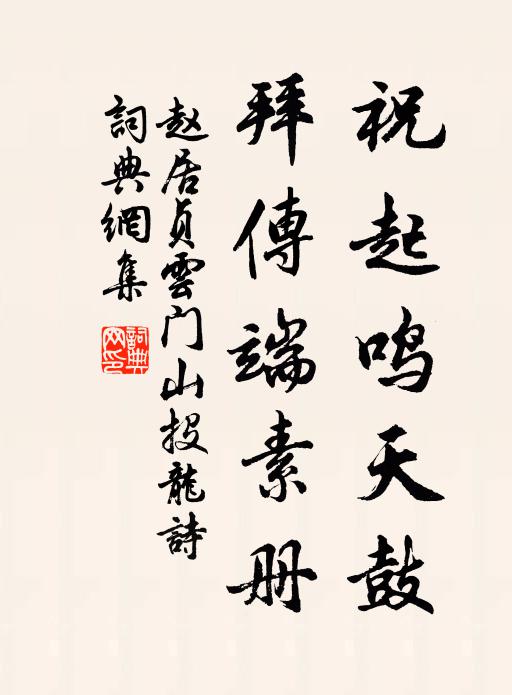 祝起鸣天鼓
拜傳端素册
赵居贞雲门山投龍詩
詞典網集
詞典
网印